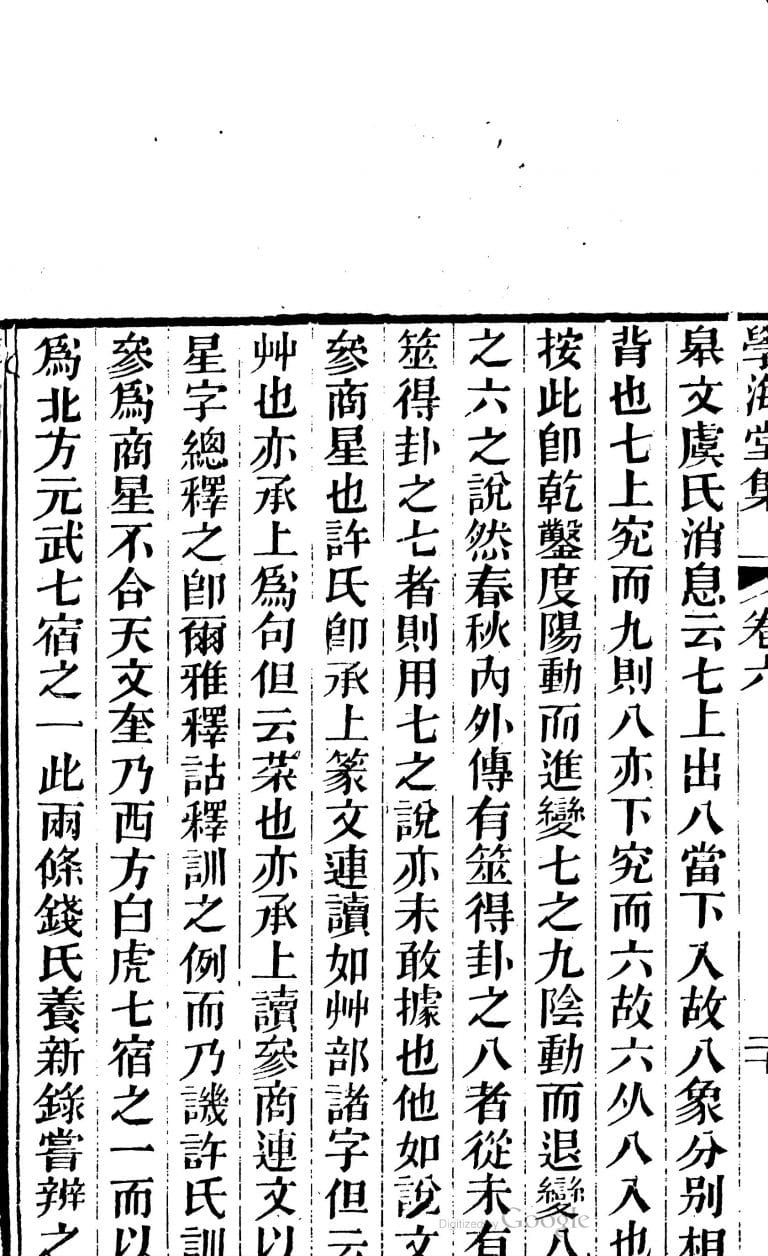 學海堂集 卷六 二十
皋文虞氏消息云七上出八當下入故八象分別相
背也七上究而九則八亦下究而六故六从八入也
按此卽乾鑿度陽動而進變七之九陰動而退變八
之六之說然春秋內外傳有筮得卦之八者從未有
筮得卦之七者則用七之說亦未敢據也他如說文
參商星也許氏卽承上篆文連讀如艸部諸字但云
艸也亦承上爲句但云菜也亦承上讀參商連文以
星字總釋之卽爾雅釋詁釋訓之例而乃譏許氏訓
參爲商星不合天文奎乃西方白虎七宿之一而以
爲北方元武七宿之一此兩條錢氏養新錄嘗辨之
Digitized by Google